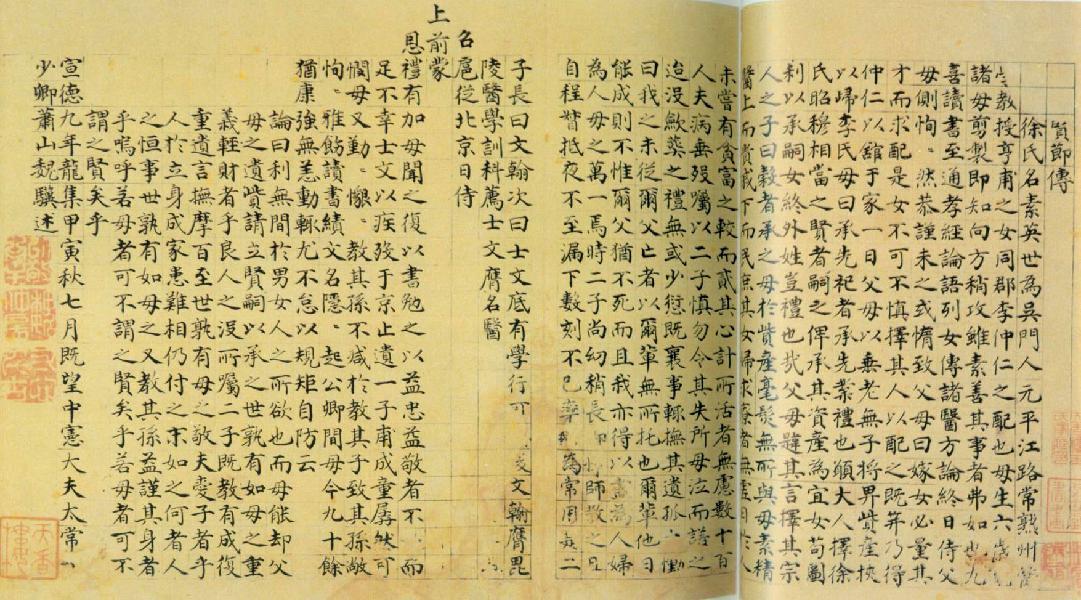 賢節傳
徐氏名素英世為吳門人元平江路常熟州醫
教授亨甫之女同郡李仲仁之配也母生六歲
諸母剪製即知向方稍攻雖素善其事者弗如也九
喜讀書至通孝經論語列女傳諸醫方論終日侍父
母側恂〻然恭謹未之或惰致父母曰嫁女必量其
才而求配是女不可不慎擇其人以配之既笄乃得
仲仁以館于家一日父母以無老無子將畀貲產挾
以歸李氏母曰承先祀者承先業禮也願大人擇徐
氏昭穆相當之賢者嗣之俾承其資產為宜女苟圖
利以承嗣女終外姓豈禮也哉父母韙其言擇其宗
人之子曰教者承之母於貲產毫髮無所與母素精
醫上而貴戚下而民庶其女婦求藥者無虛日於人
未嘗有貧富之較而貳其心計所活者無慮數十百
人夫病垂歿囑以二子慎勿令其失所母泣而諾之
迨沒歛葬之禮無或少愆既襄事輒撫其遺孤慟
曰我之未從爾父亡者以爾輩無所托也爾輩他日
能成則不惟爾父猶不死而且我亦得以盡為人婦
為人母之萬一焉時二子尚幼稍長師教之凡
自程督抵夜不至漏下數刻不已為常用是二
子長曰文翰次曰士文底有學行可文翰膺毘
陵醫學訓科薦士文膺名醫
召扈從北京日侍
上前蒙
恩禮有加母聞之復以書勉之以益忠益敬者不一而
足不幸士文以疾歿于京止遺一子甫成童孱然可
憫母又勤〻懇〻教其孫不減於教其子致其孫敬
恂〻雅飭讀書績文名隱〻起公卿間母今九十餘
猶康強無恙動輒尤不怠以規矩自防云
論曰利無間於男女人之所欲也而母能却父
母之遺貲請立賢嗣以承之世孰有如母之重
義輕財者乎良人之沒所囑二子既教有成復
重遺言撫摩百至世孰有母之敬夫愛子者乎
人於立身成家患難相仍付之末如之何者人
之恒事世孰有如母之又教其孫益謹其身者
乎嗚呼若母者可不謂之賢矣乎若母者可不
謂之賢矣乎
宣德九年龍集甲寅秋七月既望中憲大夫太常
少卿蕭山魏驥述